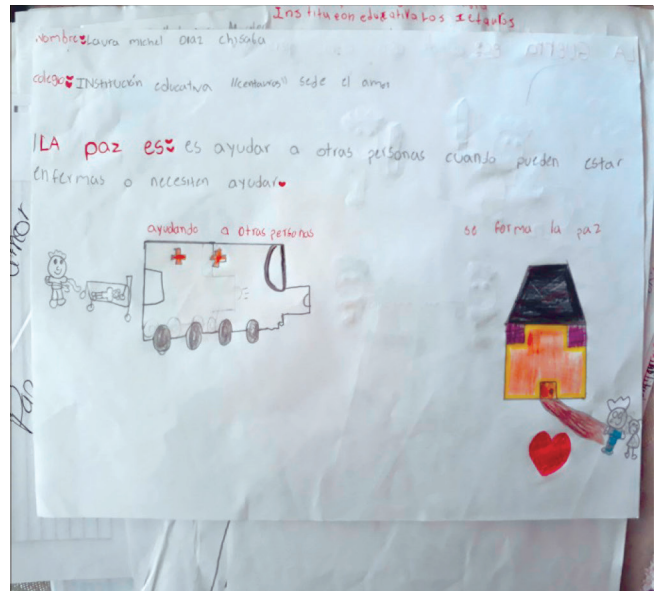 Institucon educativa Los Icaros
Nombre Laura michel Diaz chisaba
colegio INstitución educativa "centauros" sede el amor
LA paz es es ayudar a otras personas cuando pueden estar
enfermas o necesiten ayudar
ayudando a otras personas
se forma la paz
amor